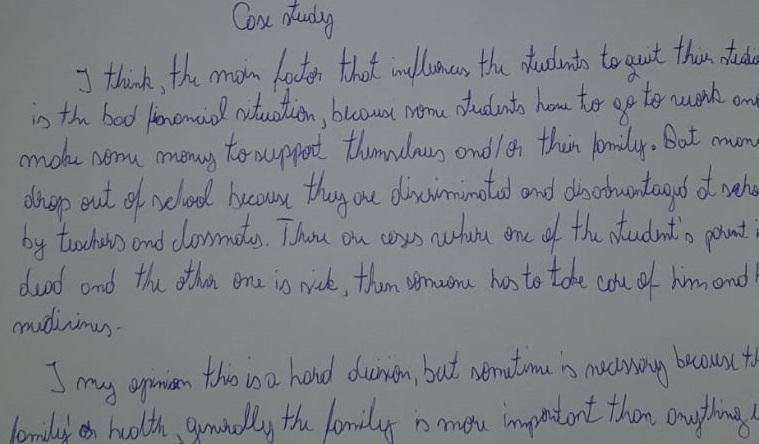 Case study
I think, the main factor that influences the students to quit their
is the bad financial situation, because some students have to go to work
make some money to support themselves and/or their family. But
drop out of school because they are discriminated and disadvantaged at
by teachers and classmates. There are cases where one of the student's parent
dead and the other one is sick, then someone has to take care of him and
medicines.
I my opinion this is a hard decision, but sometime is necessary because
family's health, generally the family is more important than anything